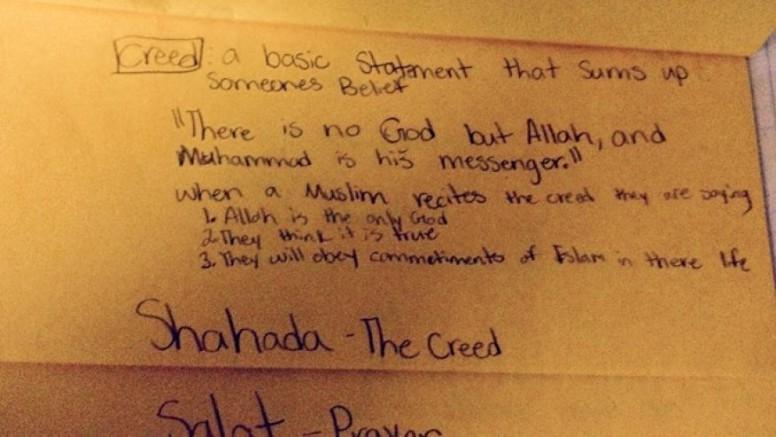 Creed: a basic Statment that sums up
Someones Belief
"There is no God but Allah, and
Muhammad is his messenger."
when a Muslim recites the creed they are saying
1. Allah is the only God
2. They think it is true
3. They will obey commetiments of Islam in there life
Shahada - The Creed
Salat - Prayer